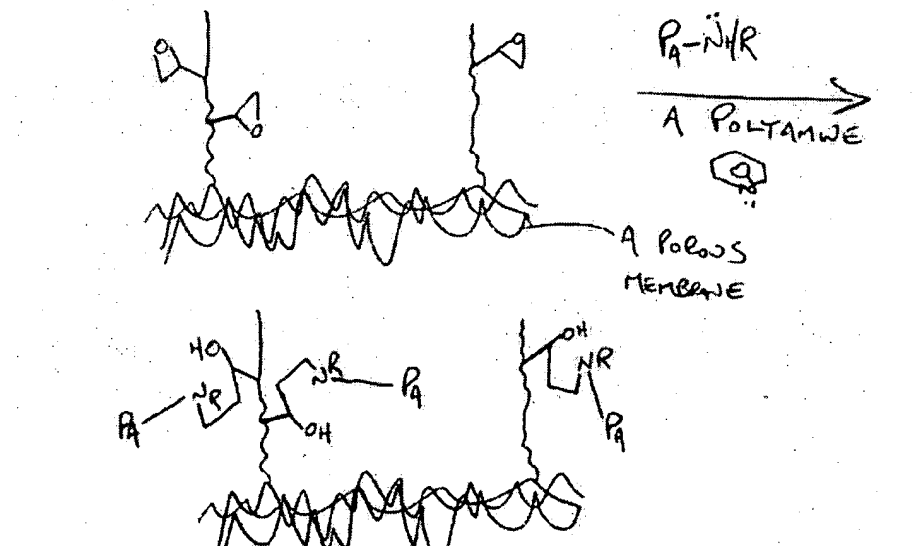 O
O
O
PA-N̈HR
A POLYAMINE
N
A POROUS
MEMBRANE
HO
NR
PA
NR
PA
OH
OH
NR
PA